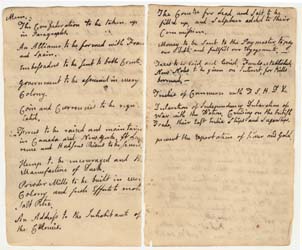 Mem.
The Confederation to be taken up
in Paragraphs.
An Alliance to be formed with France
and Spain.
Embassadors to be sent to both Courts.
Government to be assumed in every
Colony.
Coin and Currencies to be regu-
lated.
Forces to be raised and maintained
in Canada and New York. St. Lawrence
and Hudsons Rivers to be secured.
Hemp to be encouraged and the
Manufacture of Duck.
Powder Mills to be built in every
Colony, and fresh Efforts to make
Salt Petre.
An Address to the Inhabitants of
the Colonies.
The Committee for Lead and Salt to be
filled up, and Sulphur added to their
Commission.
Money to be sent to the Paymaster, to pay
our Debts, and fullfill our Engagements.
Taxes to be laid, and levied, Funds established.
New Notes to be given on Interest, for Bills
borrowed.
Treaties of Commerce with F. S. H. D. &c.
Declaration of Independency, Declaration of
War with the Nation, Cruising on the british
Trade, their East India Ships and Sugar Ships.
prevent the Exportation of Silver and Gold.